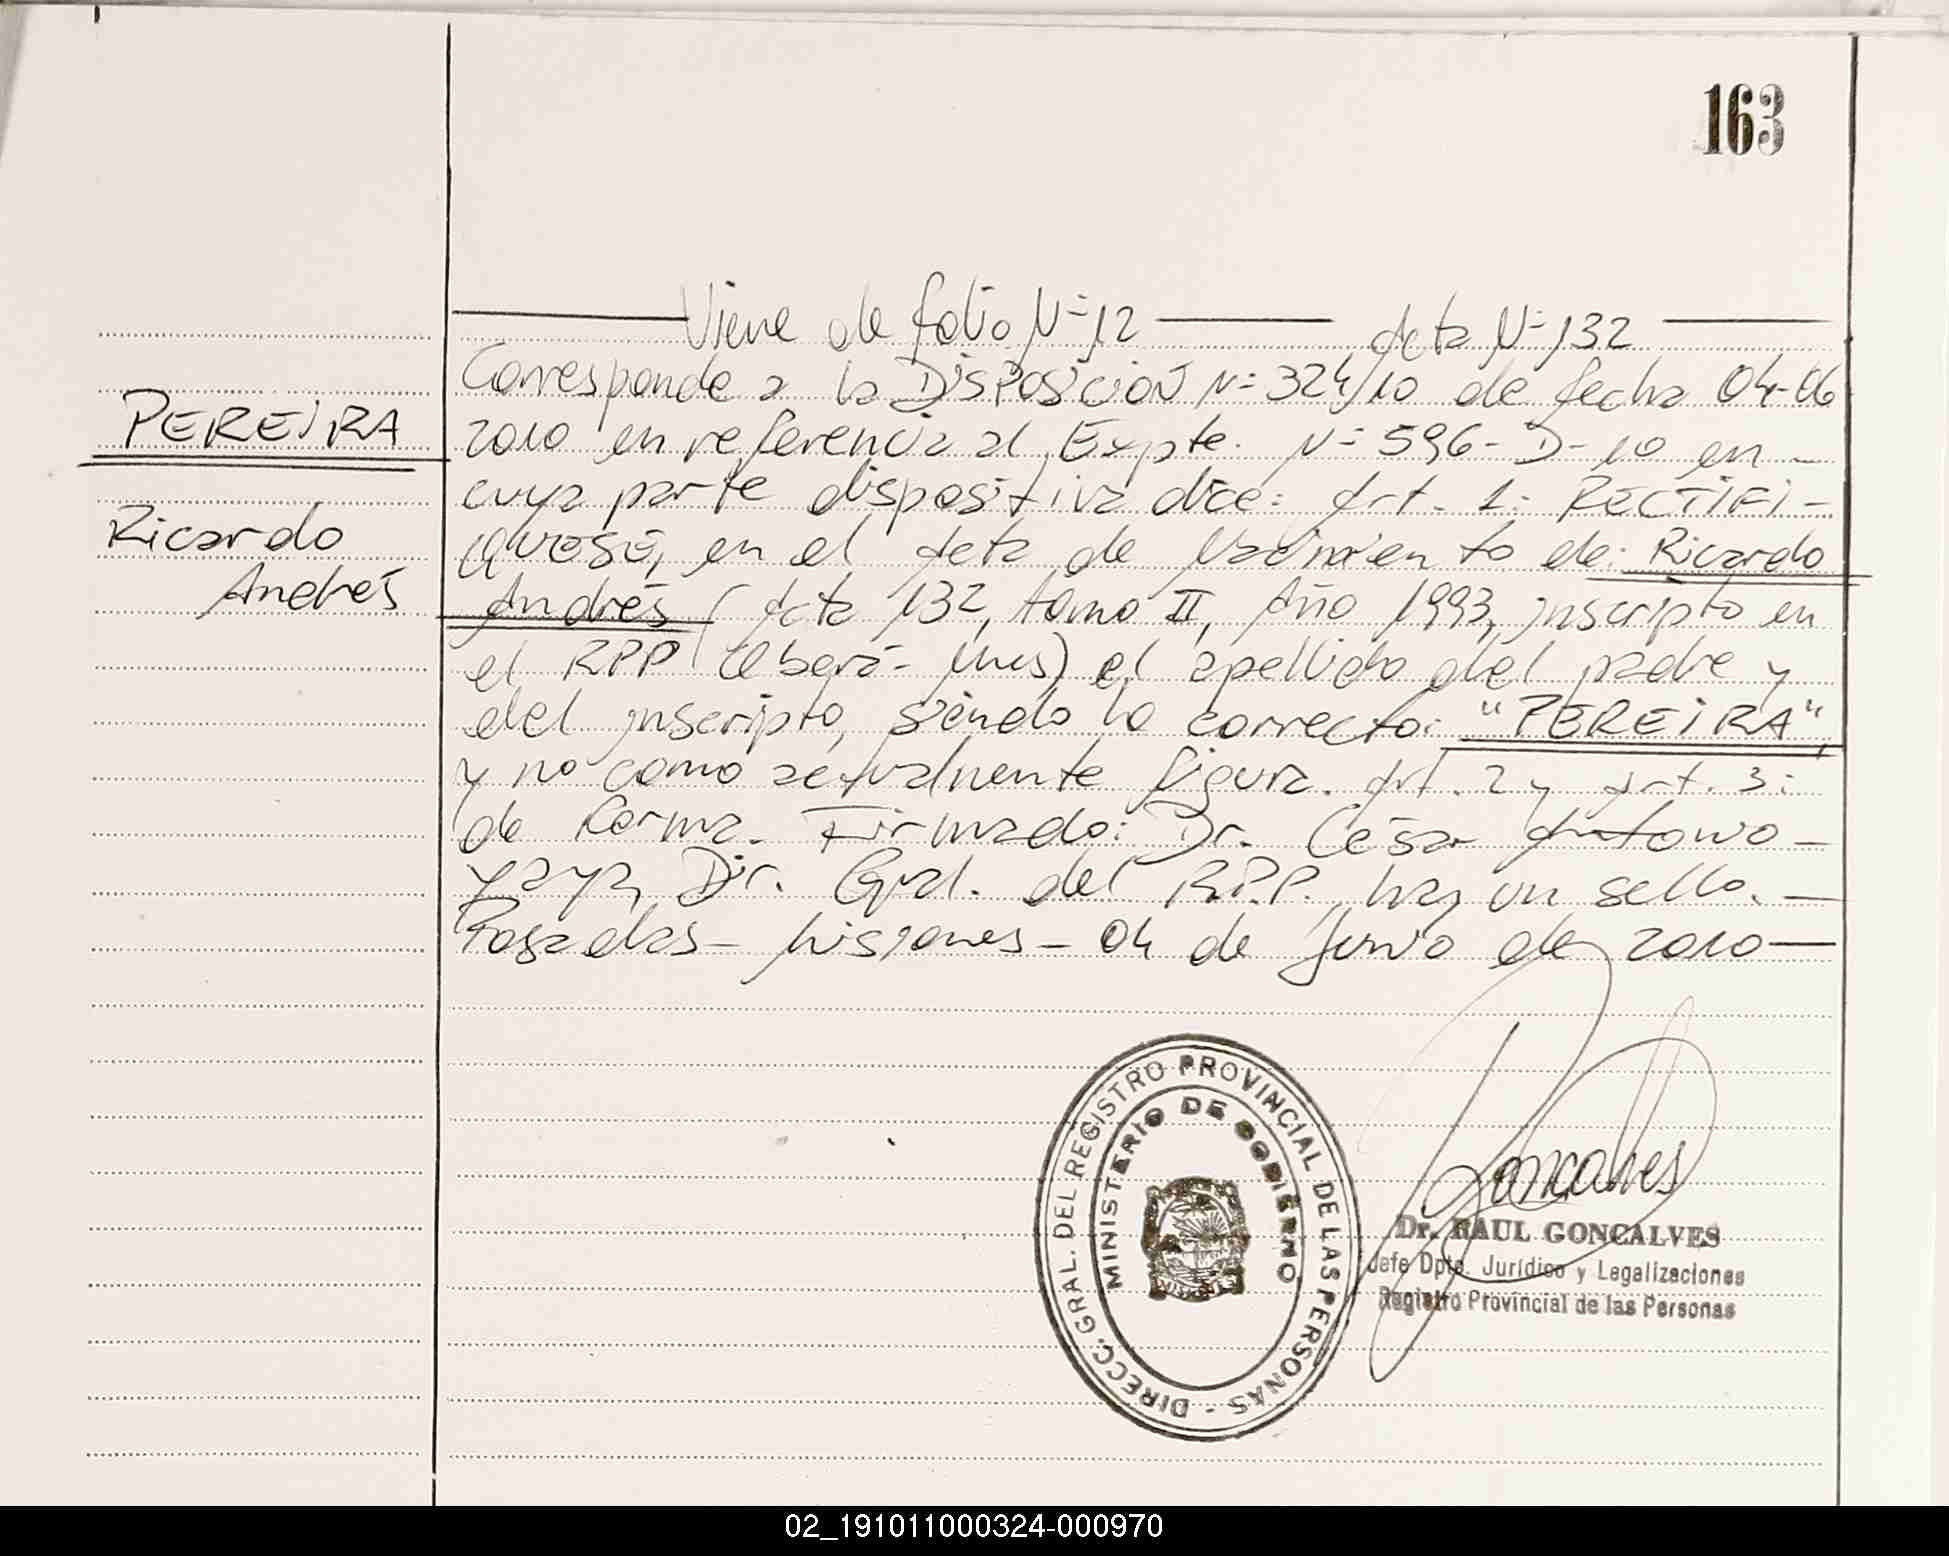 163
Viene de folio N= 12 — Acta N= 132
Corresponde a la DISPOSICION N= 324/10 de fecha 04-06
PEREIRA
2010 en referencia al Expte. N= 596-D-10 en -
cuya parte dispositiva dice: Art. 1: RECTIFI-
Ricardo
QUESE, en el Acta de Nacimiento de: Ricardo
Andrés
Andrés (Acta 132, tomo II, Año 1993, inscripto en
el RPP Oberá - Mnes) el apellido del padre y
del inscripto, siendo lo correcto: "PEREIRA",
y no como actualmente figura. Art. 2 y Art. 3:
de forma. Firmado: Dr. César Antonio -
Yaya, Dir. Gral. del R.P.P. hay un sello. -
Posadas - Misiones - 04 de Junio de 2010 —
DIRECC. GRAL. DEL REGISTRO PROVINCIAL DE LAS PERSONAS -
MINISTERIO DE GOBIERNO
Goncalves
Dr. RAUL GONCALVES
Jefe Dpto. Jurídico y Legalizaciones
Registro Provincial de las Personas
02_191011000324-000970